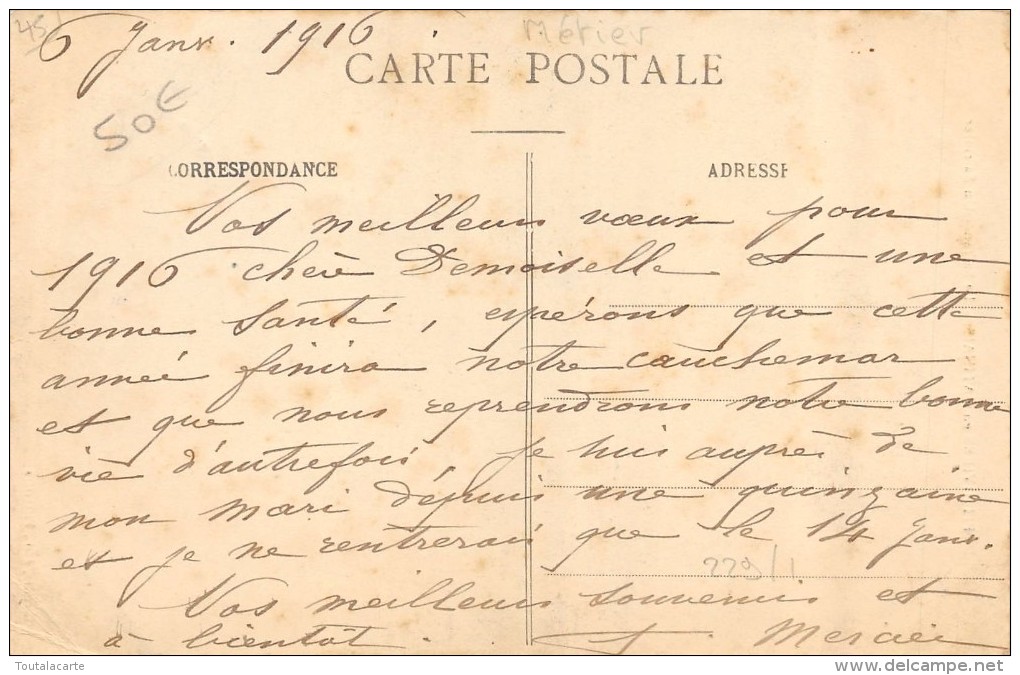 45
6 Janv. 1916
Métier
CARTE POSTALE
50€
CORRESPONDANCE
ADRESSE
Nos meilleurs vœux pour
1916 chère Demoiselle et une
bonne santé, espérons que cette
année finira notre cauchemar
et que nous reprendrons notre bonne
vie d'autrefois, je suis auprès de
mon mari dépuis une quinzaine
et je ne rentrerais que le 14 Janv.
229/1
Nos meilleurs souvenirs et
à bientôt.
Mercier
Toutalacarte
www.delcampe.net